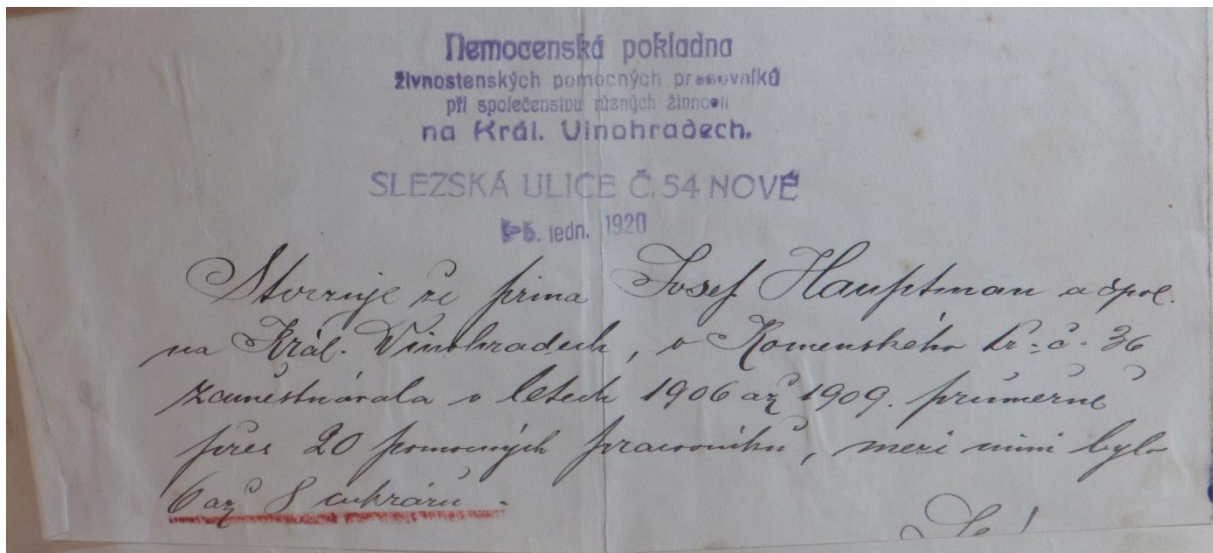 Nemocenská pokladna
živnostenských pomocných pracovníků
při společenstvu různých živností
na Král. Vinohradech.
SLEZSKÁ ULICE Č. 54 NOVÉ
5. ledn. 1920
Stvrzuje že firma Josef Hauptman a spol.
na Král. Vinohradech, v Komenského tř. č. 36
zaměstnávala v letech 1906 až 1909. průměrně
přes 20 pomocných pracovníků, mezi nimi bylo
6 až 8 cukrářů.